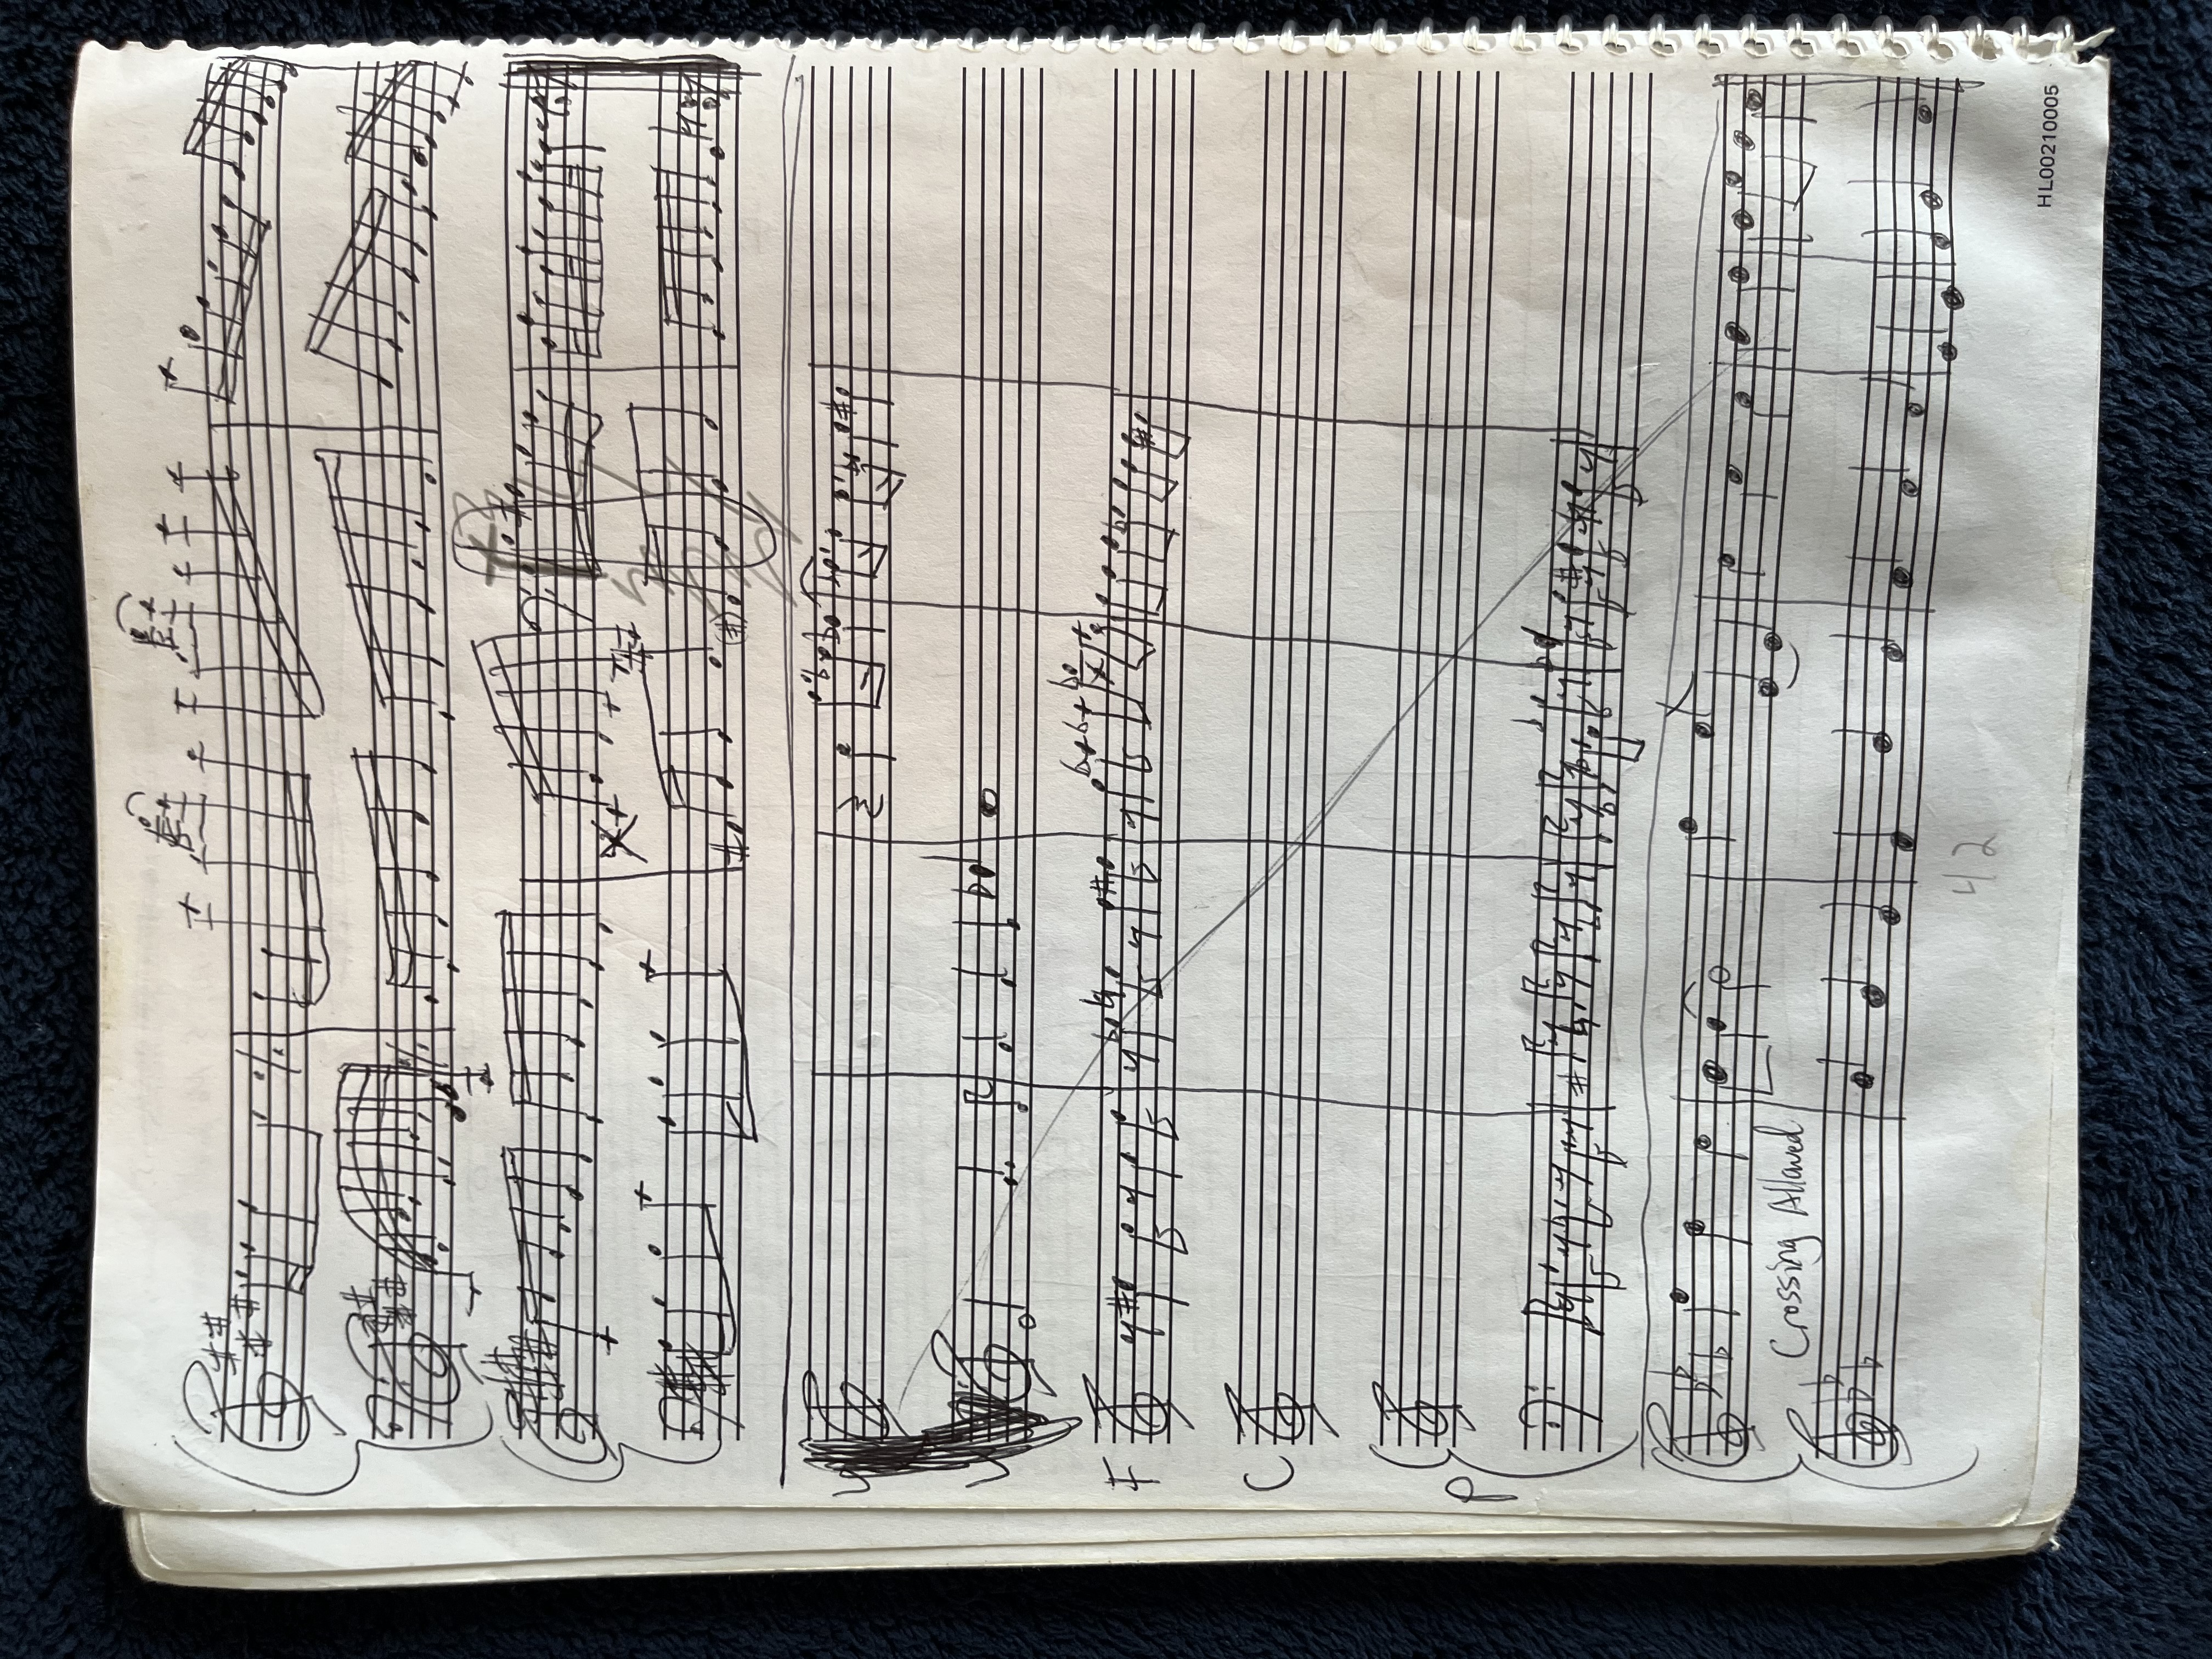 F
C
P
Crossing Allowed
42
HL00210005